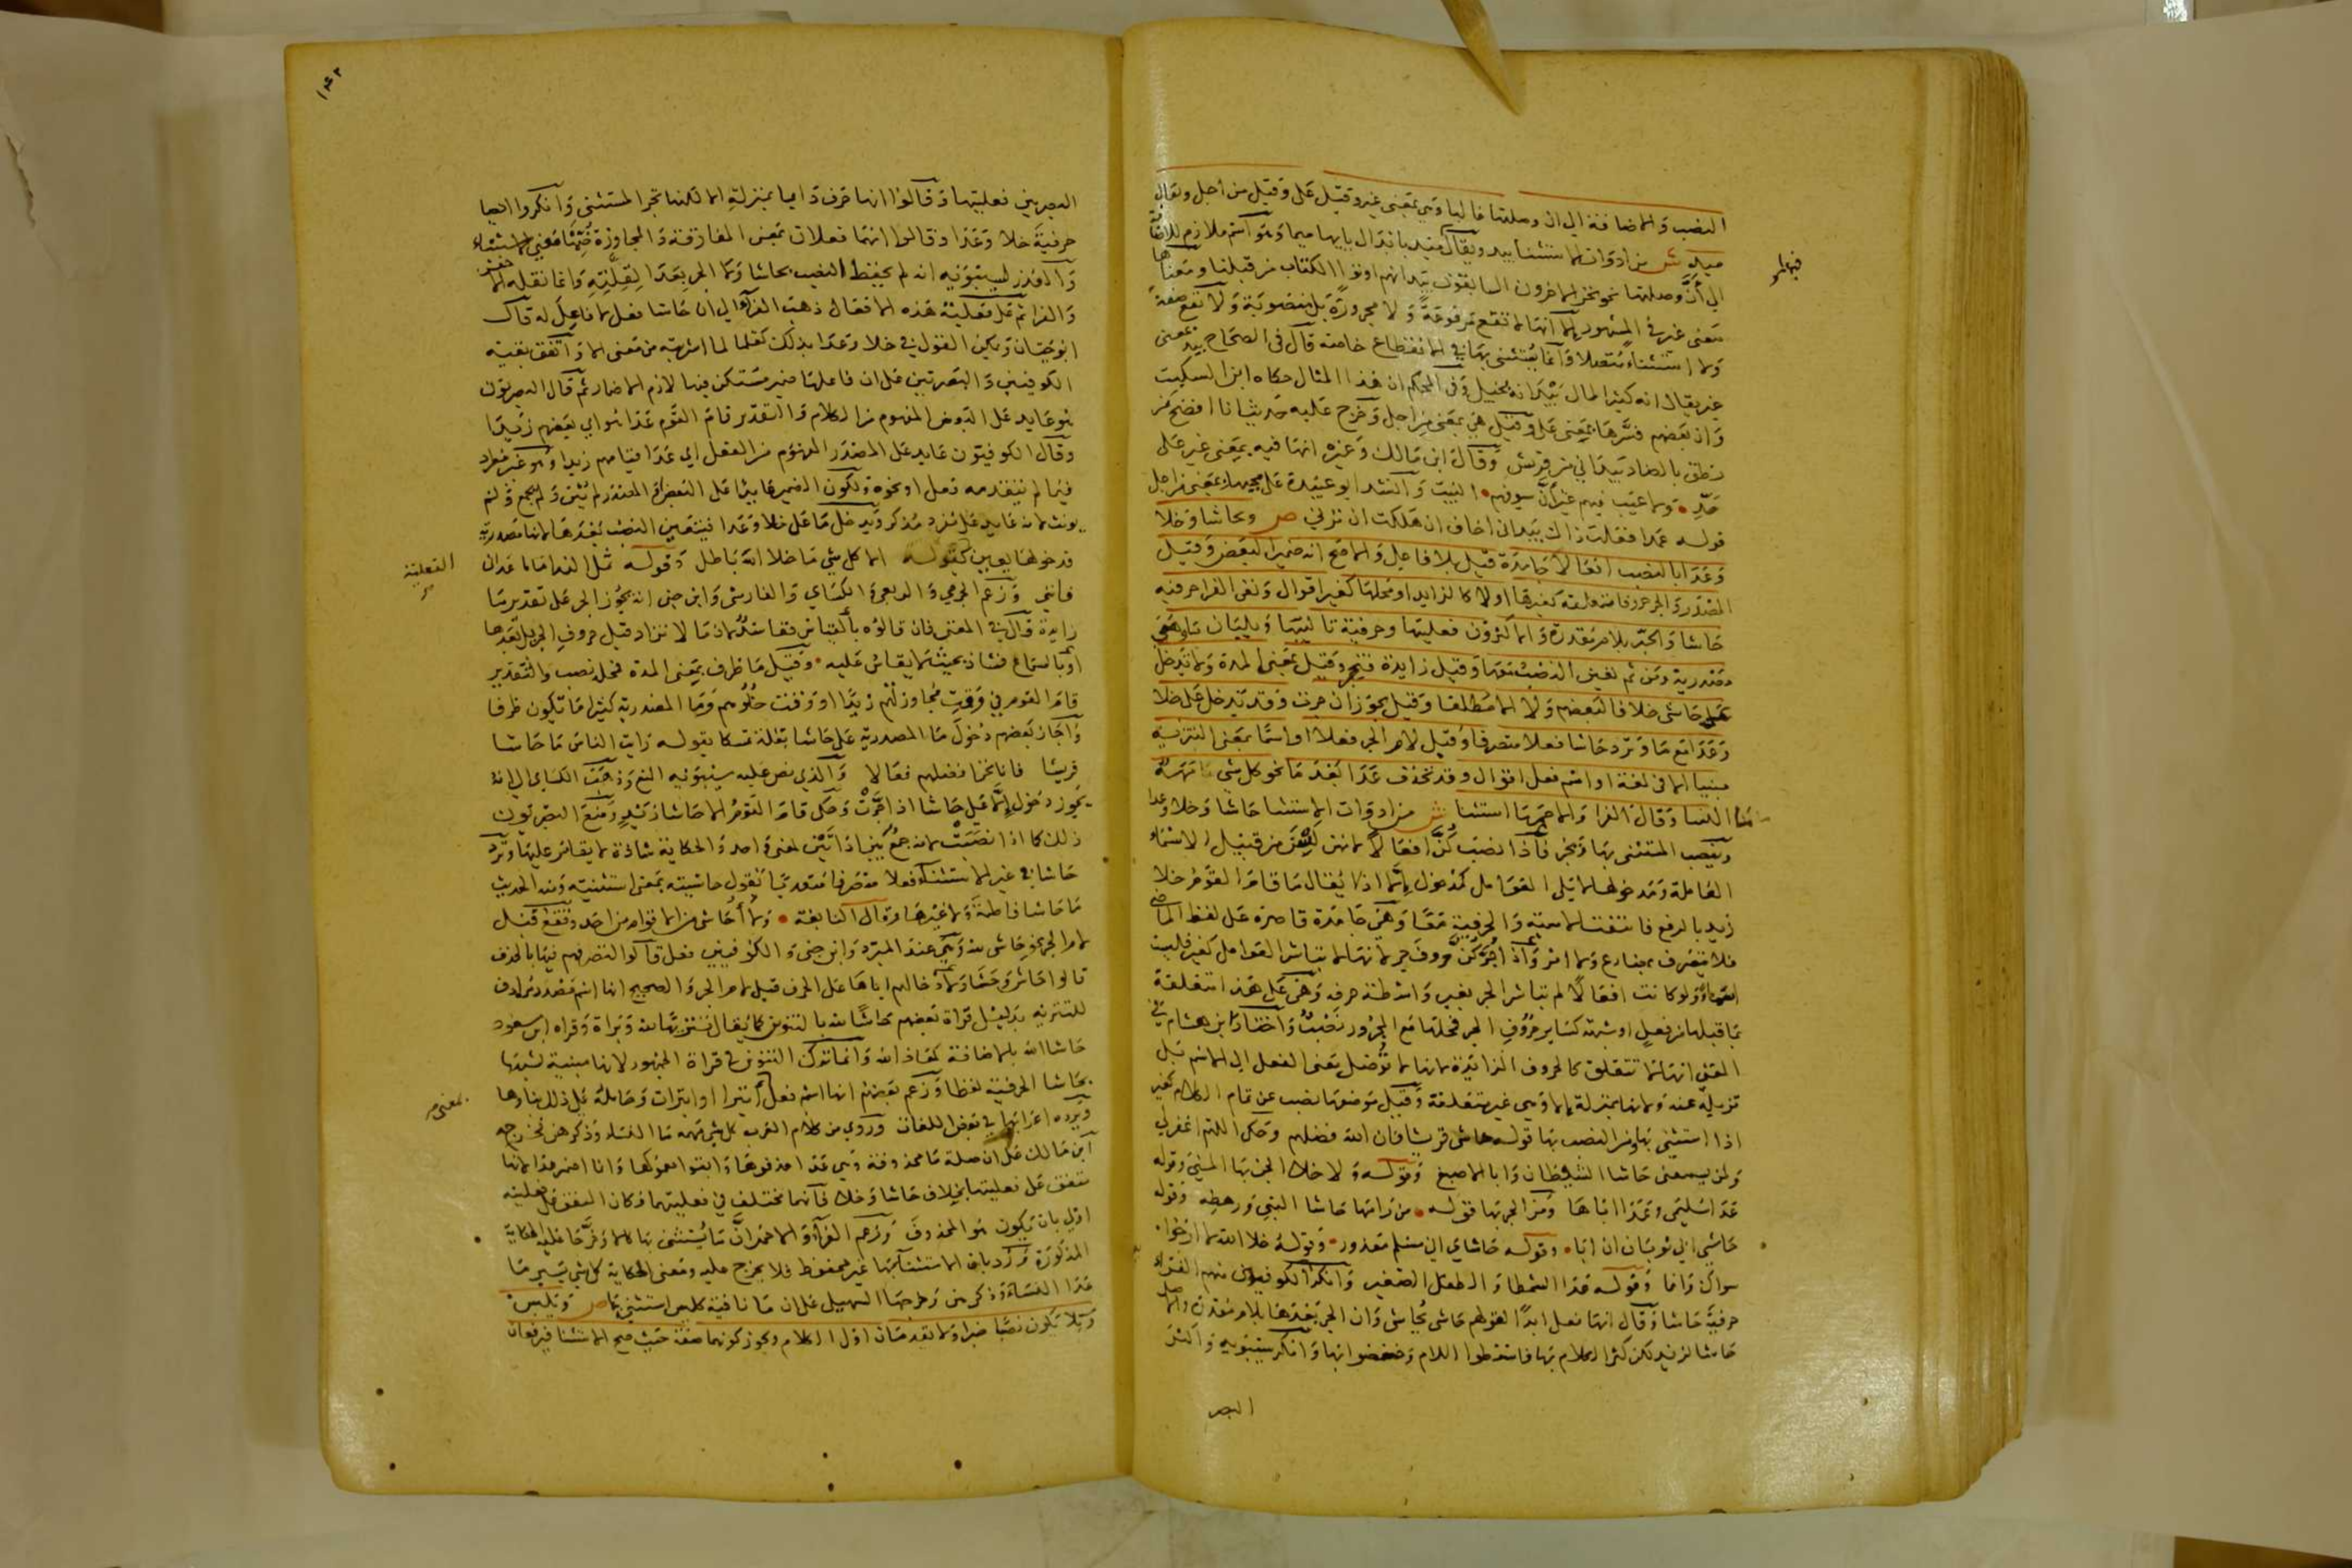 النصب والاضافة الى ان وصلتها غالبا وهي بمعنى غير وقيل على وقيل من اجل ويقال
ميد ش من ادوات الاستثنا بيد ويقال ميد بابدال بايها ميما وهو اسم ملازم للاضافة
الى أنّ وصلتها نحو نحن الاخرون السابقون بيد انهم اوتوا الكتاب من قبلنا ومعناها
معنى غير في المشهور الا انها لا تقع مرفوعة ولا مجرورة بل منصوبة ولا تقع صفة
ولا استثناء متصلا وانما يستثنى بها في الانقطاع خاصة قال في الصحاح بيد بمعنى
غير يقال انه كثير المال بيد انه بخيل وفي المحكم ان هذا المثال حكاه ابن السكيت
وان بعضهم فسرها بمعنى على وقيل هي بمعنى من اجل وخرج عليه حديث انا افصح من
نطق بالضاد بيد اني من قريش وقال ابن مالك وغيره انها فيه بمعنى غير على
حدّ • ولا عيب فيهم غير أنّ سيوفهم • البيت وانشد ابو عبيدة على مجيها بمعنى من اجل
قوله عمدا فعلت ذاك بيد اني اخاف ان هلكت ان ترني ص وبحاشا وخلا
وعدا بالنصب افعالا جامدة قيل بلا فاعل والاصح انه ضمير البعض وقيل
المصدر والجر حروفا متعلقة كغيرها او لا كالزايد او محلها كغير اقوال ونفى الفرا حرفية
حاشا والجر بلام مقدرة والاكثرون فعليتها وحرفية تاليتها ويليان ما
مصدرية ومن ثم تعين النصب معها وقيل زايدة فتجر وقيل بمعنى المدة ولا تدخل
على حاشى خلافا لبعضهم ولا الا مطلقا وقيل يجوز ان جرت وقد تدخل على خلا
وعدا مع ما وترد حاشا فعلا متصرفا وقيل لام الجر فعلا او اسما بمعنى التنزيه
مبنيا الا في لغة او اسم فعل اقوال وقد تحذف عدا بعد ما نحو كل شي مهه
ما النسا وقال الفرا والاحمر ما استثنا ش من ادوات الاستثنا حاشا وخلا وعدا
وينصب المستثنى بها ويجر فاذا نصب كنّ افعالا لانهن لسن من قبيل الاسماء
العاملة ومدخولها لا يلي العوامل كمدخول إلا اذ لا يقال ما قام القوم خلا
زيد بالرفع فانتفت الاسمية والحرفية معا وهي جامدة قاصرة على لفظ الماضي
فلا تتصرف بمضارع ولا امر واذا جررن كنّ حروف جر لانها لا تباشر العوامل كغير فليست
اسماء ولو كانت افعالا لم تباشر الجر بغير واسطة حرفه وهي على هذا متعلقة
بما قبلها من فعل او شبهه كساير حروف الجر فمحلها مع المجرور نصب واختار ابن هشام في
المغنى انها لا تتعلق كالحروف الزايدة لانها لا توصل معنى الفعل الى الاسم بل
تزيله عنه ولانها بمنزلة الا وهي غير متعلقة وقيل موضعها نصب عن تمام الكلام كغير
اذا استثنى بها ومن النصب بها قوله حاشى قريشا فان الله فضلهم وحكي اللهم اغفر لي
ولمن يسمعنى حاشا الشيطان وابا الاصبغ وقوله ولا خلا الجن بها انسي وقوله
عدا سليمى وعدا اباها ومن الجر بها قوله • من رامها حاشا النبي ورهطه وقوله
حاشى ابي ثوبان ان ابا • وقوله حاشاي اني مسلم معذور • وقوله خلا الله لا ارجوا
سواك وانما وقوله عدا الشمطا والطفل الصغير وانكر الكوفيون منهم الفراء
حرفية حاشا وقال انها فعل ابدا لقولهم حاشى يحاشى وان الجر بعدها بلام مقدرة والاصل
حاشا لزيد لكن كثر الكلام بها فاسقطوا اللام وخفضوا بها وانكر سيبويه واكثر
البصر
١٤٢
البصريين فعليتها وقالوا انها حرف دايما بمنزلة الا لكنها تجر المستثنى وانكروا ايضا
حرفية خلا وعدا وقالوا انهما فعلان بمعنى المفارقة والمجاوزة ضمنا معنى الاستثناء
والعذر لسيبويه انه لم يحفظ النصب بحاشا ولا الجر بعدا لقلته وانما نقله الاخفش
والفرا ثم على فعلية هذه الافعال ذهب الفرا الى ان حاشا فعل لا فاعل له قال
ابو حيان ويمكن القول في خلا وعدا بذلك كقلما لما اشربته من معنى الا واتفق بقية
الكوفيين والبصريين على ان فاعلها ضمير مستكن فيها لازم الاضمار ثم قال البصريون
هو عايد على البعض المفهوم من الكلام والتقدير قام القوم عدا هو اي بعضهم زيدا
وقال الكوفيون عايد على المصدر المفهوم من الفعل اي عدا قيامهم زيدا وهو غير مطرد
فيما لم يتقدمه فعل او نحوه ولكون الضمير عايدا على البعض او المصدر لم يثن ولم يجمع ولم
يونث لانه عايد على مفرد مذكر ويدخل ما على خلا وعدا فيتعين النصب بعدها لانها مصدرية
فدخولها يعين الفعلية كقوله الا كل شي ما خلا الله باطل وقوله تمل الندامى ما عداني
فانني وزعم الجرمي والربعي والكسائي والفارسي وابن جنى انه يجوز الجر على تقدير ما
زايدة قال في المغنى فان قالوه بالقياس ففاسد لان ما لا تزاد قبل حروف الجر بل بعدها
او بالسماع فشاذ بحيث لا يقاس عليه • وقيل ما ظرف بمعنى المدة فمحله نصب والتقدير
قام القوم في وقت مجاوزتهم زيدا او وقت خلوهم وما المصدرية كثيرا ما تكون ظرفا
واجاز بعضهم دخول ما المصدرية على حاشا بقلة تمسكا بقوله رايت الناس ما حاشا
قريشا فانا نحن افضلهم فعالا والذي نص عليه سيبويه المنع وذهب الكسائي الى انه
يجوز دخول إلا على حاشا اذا جرت وحكى قام القوم الا حاشا زيد ومنع البصريون
ذلك كما اذا نصبت لانه جمع بين اداتين لمعنى واحد والحكاية شاذة لا يقاس عليها وترد
حاشا في غير الاستثنا فعلا متصرفا متعديا تقول حاشيته بمعنى استثنيته ومنه الحديث
ما حاشا فاطمة ولا غيرها وقال النابغة • ولا أحاشى من الاقوام من احد وتقع قبل
لام الجر نحو حاشى لله وهي عند المبرد وابن جنى والكوفيين فعل قالوا لتصرفهم فيها بالحذف
قالوا حاش وحشا ولادخالهم اياها على الحرف قبل لام الجر والصحيح انها اسم مصدر مرادف
للتنزيه بدليل قراة بعضهم حاشًا لله بالتنوين كما يقال تنزيها لله وبراة وقراة ابن مسعود
حاشا الله بالاضافة كمعاذ الله وانما ترك التنوين في قراة الجمهور لانها مبنية لشبهها
بحاشا الحرفية لفظا وزعم بعضهم انها اسم فعل بمعنى أتبرا او تبرات وحامله على ذلك بناوها
ويرده اعرابها في بعض اللغات وروي من كلام العرب كل شي مهه ما النساء وذكرهن فخرجه
ابن مالك على ان صلة ما محذوفة وهي عدا حذفوها وابقوا معمولها وانا اضمر عدا لانها
متفق على فعليتها بخلاف حاشا وخلا فانهما مختلف في فعليتهما وكان المتفق على فعليته
اولى بان يكون هو المحذوف وزعم الفرا والاحمر انّ ما يستثنى بها كالا وخرّجا عليه الحكاية
المذكورة ورد بان الاستثنا بها غير محفوظ فلا يخرج عليه ومعنى الحكاية كل شي يسير ما
عدا النساء وذكرهن وخرجها السهيلي على ان ما نافية كليس استثنى بها ص وبليس
ولا يكون نصبا خبرا ولا يقدمان اول الكلام ويجوز كونهما صفة حيث صح الاستثنا فيرفعان